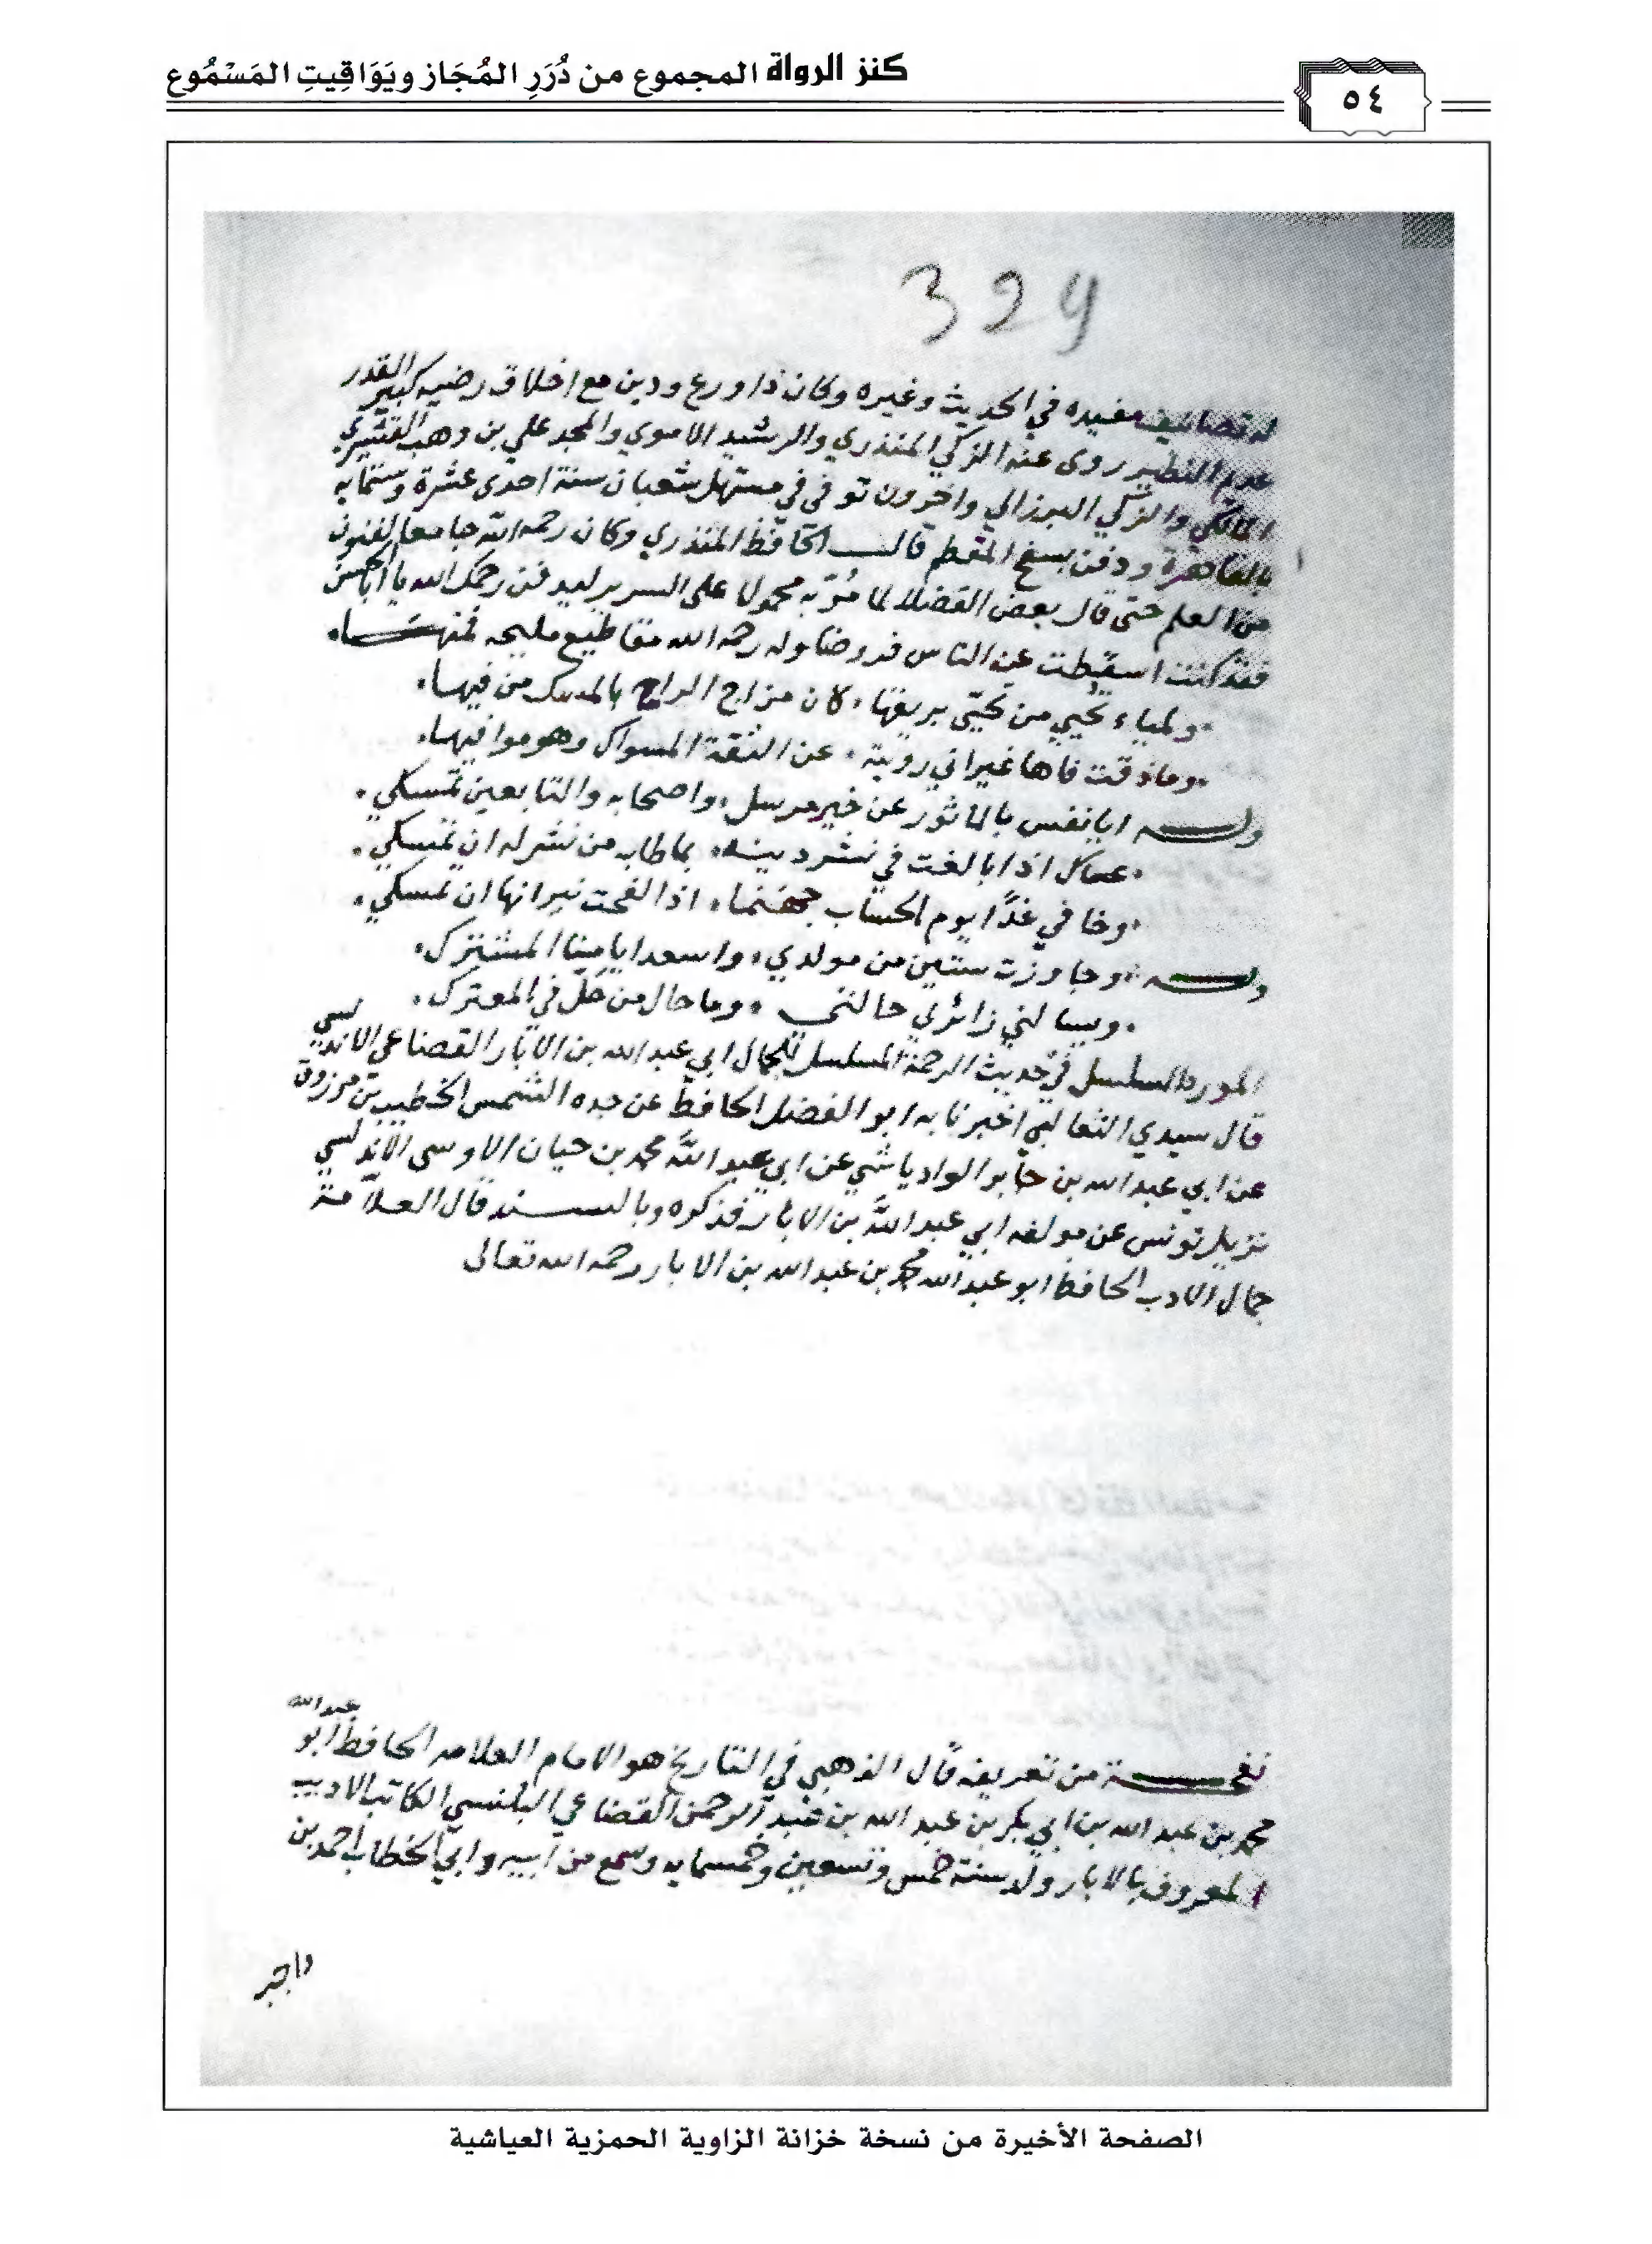 كنز الرواة المجموع من دُرَرِ المُجَاز ويَوَاقِيتِ المَسْمُوع
٥٤
329
له تصانيف مفيده في الحديث وغيره وكان ذا ورع ودين مع اخلاق رضيه كبير القدر
عديم النظير روى عنه الزكي المنذري والرشيد الاموي والمجد علي بن وهب القشيري
المالكي والزكي البرزالي واخرون توفى في مستهل شعبان سنة احدى عشرة وستمايه
بالقاهرة ودفن بسفح المقطم قال الحافظ المنذري وكان رحمه الله جامعا لفنون
من العلم حتى قال بعض الفضلا لما مُرّ به محمولا على السرير ليدفن رحمك الله يا ابا الحسن
فقد كنت اسقطت عن الناس فروضا وله رحمه الله مقاطيع مليحه فمنها
ولمياء تحيي من تحيّي بريقها لان مزاج الراح بالمسك من فيها
وماذقت فاها غيراني رويته عن الثقة المسواك وهو موافيها
وله ايا نفس بالماثور عن خير مرسل واصحابه والتابعين تمسكي
عساك اذا بالغت في نشر دينه بما طاب من نشر له ان تمسكي
وخافي غدًا يوم الحساب جهنما اذا لفحت نيرانها ان تمسكي
وله وجاوزت ستين من مولدي واسعد ايامنا المشترك
ويسالني زائري حالتي وما حال من حلّ في المعترك
المورد السلسل في حديث الرحمة المسلسل للجمال ابي عبد الله بن الابار القضاعي الاندلسي
قال سيدي الثعالبي اخبرنا به ابو الفضل الحافظ عن جده الشمس الخطيب بن مرزوق
عن ابي عبد الله بن جابر الوادياشي عن ابي عبد الله محمد بن حيان الاوسى الاندلسي
نزيل تونس عن مولفه ابي عبد الله بن الابار فذكره وبالسند قال العلامة
جمال الادب الحافظ ابو عبد الله محمد بن عبد الله بن الابار رحمه الله تعالى
نفحة من تعريفه قال الذهبي في التاريخ هو الامام العلامه الحافظ ابو عبد الله
محمد بن عبد الله بن ابي بكر بن عبد الله بن عبد الرحمن القضاعي البلنسي الكاتب الاديب
المعروف بالابار ولد سنة خمس وتسعين وخمسمايه وسمع من ابيه وابي الخطاب احمد بن
واجبر
الصفحة الأخيرة من نسخة خزانة الزاوية الحمزية العياشية